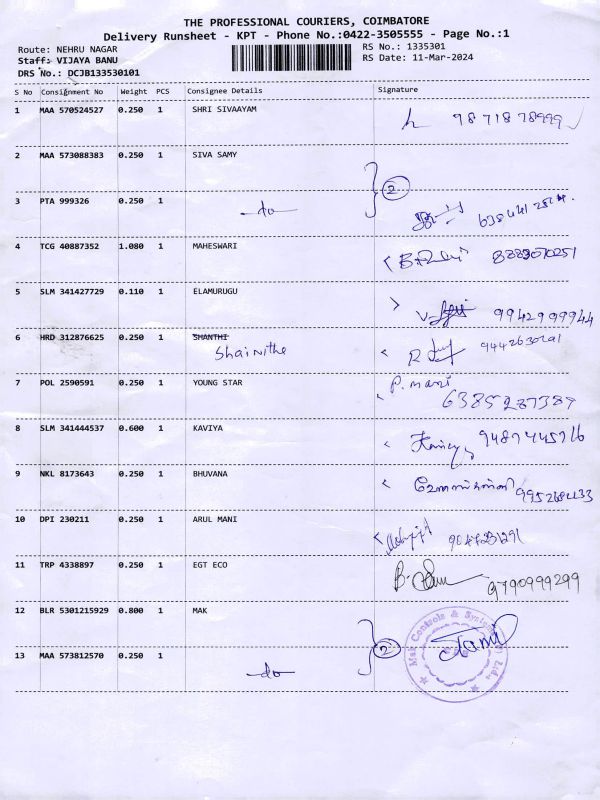 THE PROFESSIONAL COURIERS, COIMBATORE
Delivery Runsheet - KPT - Phone No.:0422-3505555 - Page No.:1
Route: NEHRU NAGAR
RS No.: 1335301
Staff: VIJAYA BANU
RS Date: 11-Mar-2024
DRS No.: DCJB133530101
S No Consignment No Weight PCS Consignee Details Signature
1 MAA 570524527 0.250 1 SHRI SIVAAYAM 9871878999
2 MAA 573088383 0.250 1 SIVA SAMY
2
3 PTA 999326 0.250 1 -do-
4 TCG 40887352 1.080 1 MAHESWARI 8883070251
5 SLM 341427729 0.110 1 ELAMURUGU 9942999944
6 HRD 312876625 0.250 1 SHANTHI
Shainithe
7 POL 2590591 0.250 1 YOUNG STAR P. mani
6385287389
8 SLM 341444537 0.600 1 KAVIYA 9487445716
9 NKL 8173643 0.250 1 BHUVANA
10 DPI 230211 0.250 1 ARUL MANI
11 TRP 4338897 0.250 1 EGT ECO 9790999299
12 BLR 5301215929 0.800 1 MAK
2
Mak Controls & Systems
13 MAA 573812570 0.250 1 -do-